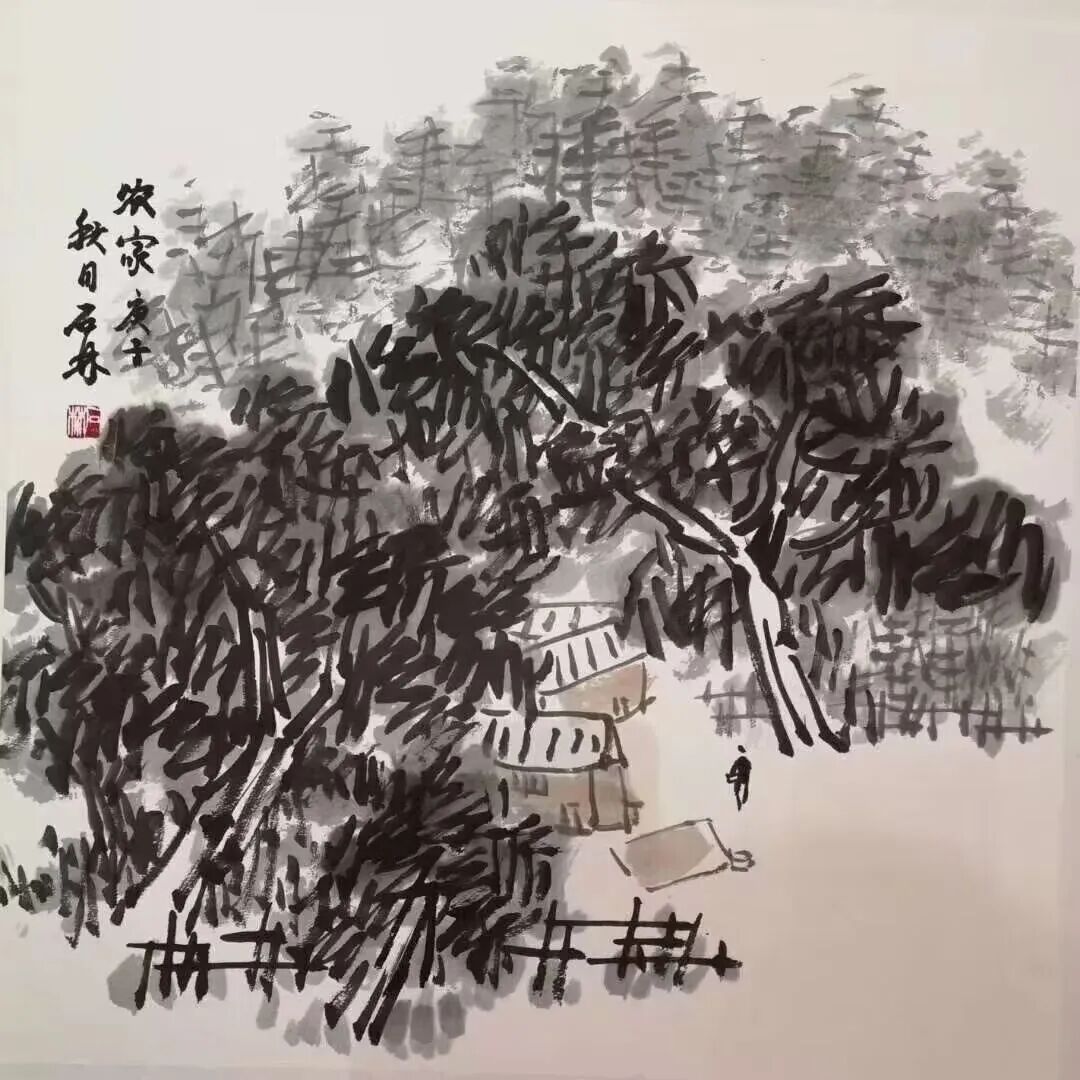 农家庚子
秋月石林